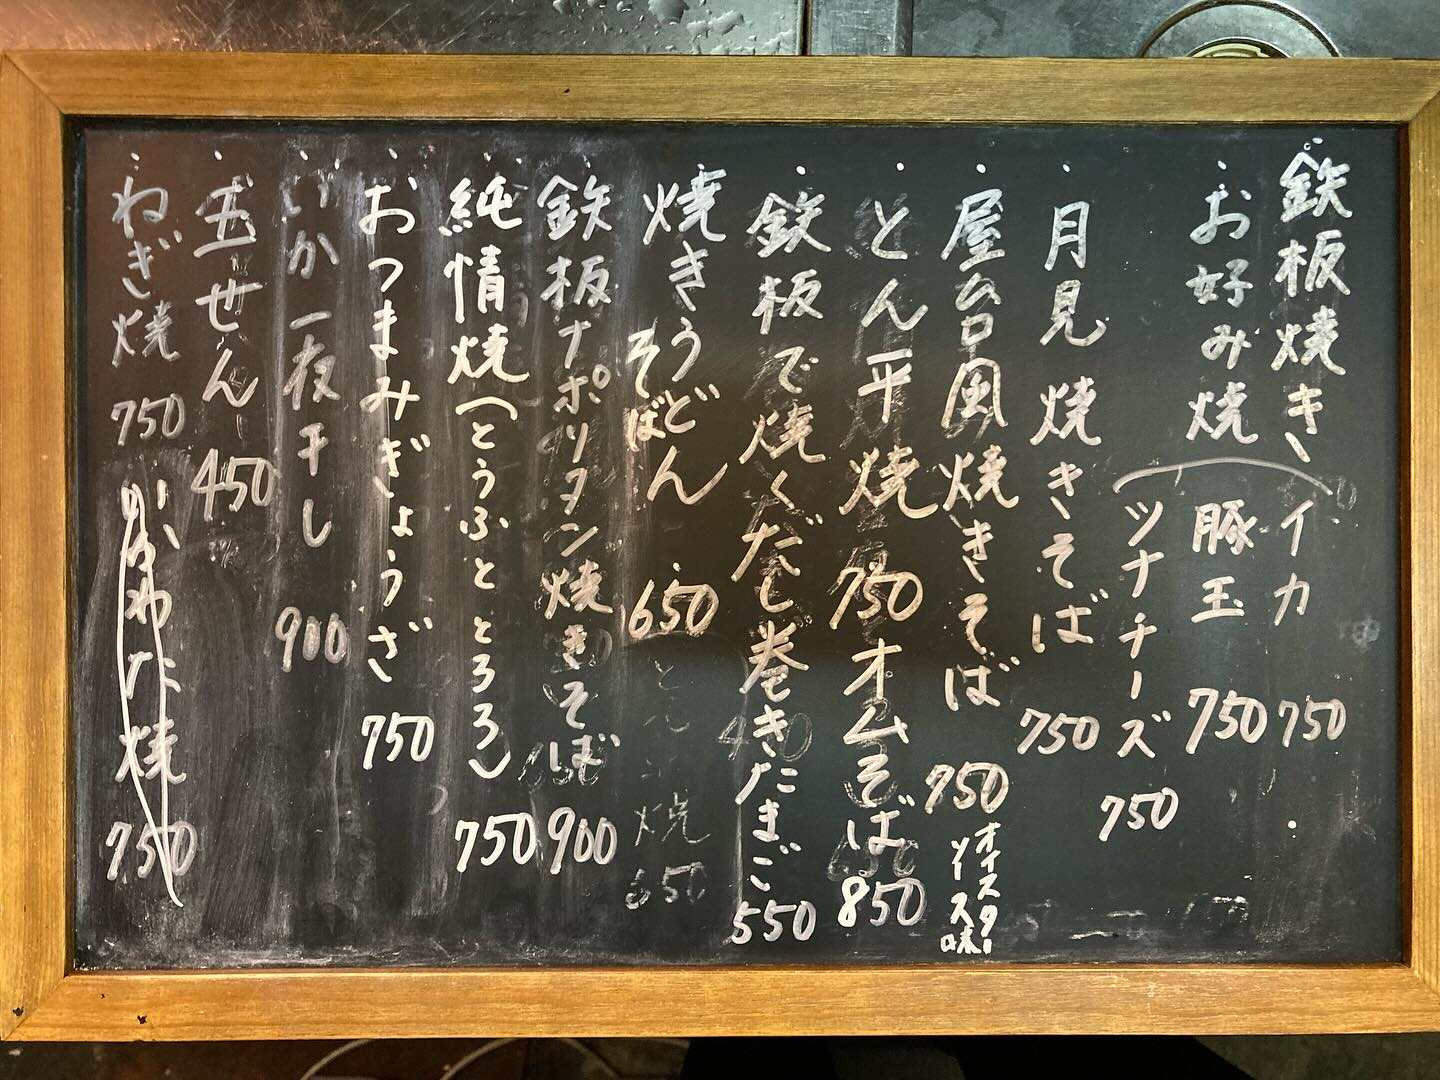 鉄板焼き
お好み焼
イカ 750
豚玉 750
ツナチーズ 750
月見焼きそば 750
屋台風焼きそば 750
オイスター
ソース味
とん平焼 750
オムそば 850
鉄板で焼くだし巻きたまご 550
焼きうどん 650
そばん
鉄板ナポリタン焼きそば 900
純情焼(とうふととろろ) 750
おつまみぎょうざ 750
いか一夜干し 900
玉せん 450
ねぎ焼 750
焼 750